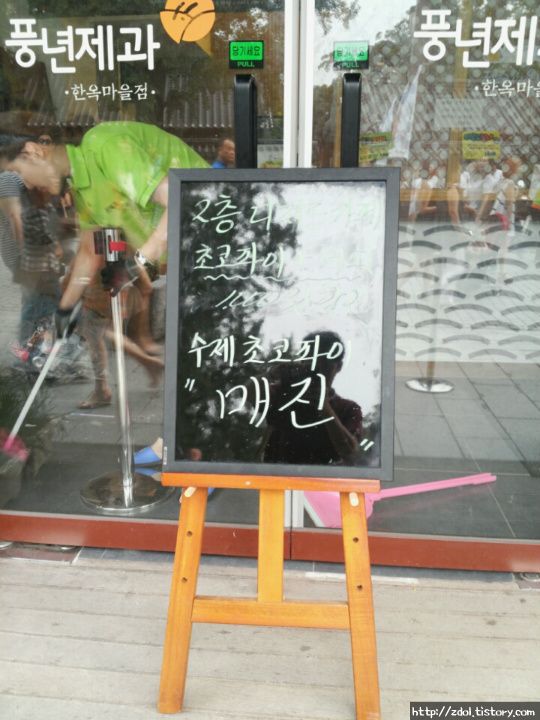 풍년제과
·한옥마을점·
당기세요
PULL
당기세요
PULL
풍년제
·한옥마을
2층
초코파이
수제초코파이
"매진"
http://zdol.tistory.com